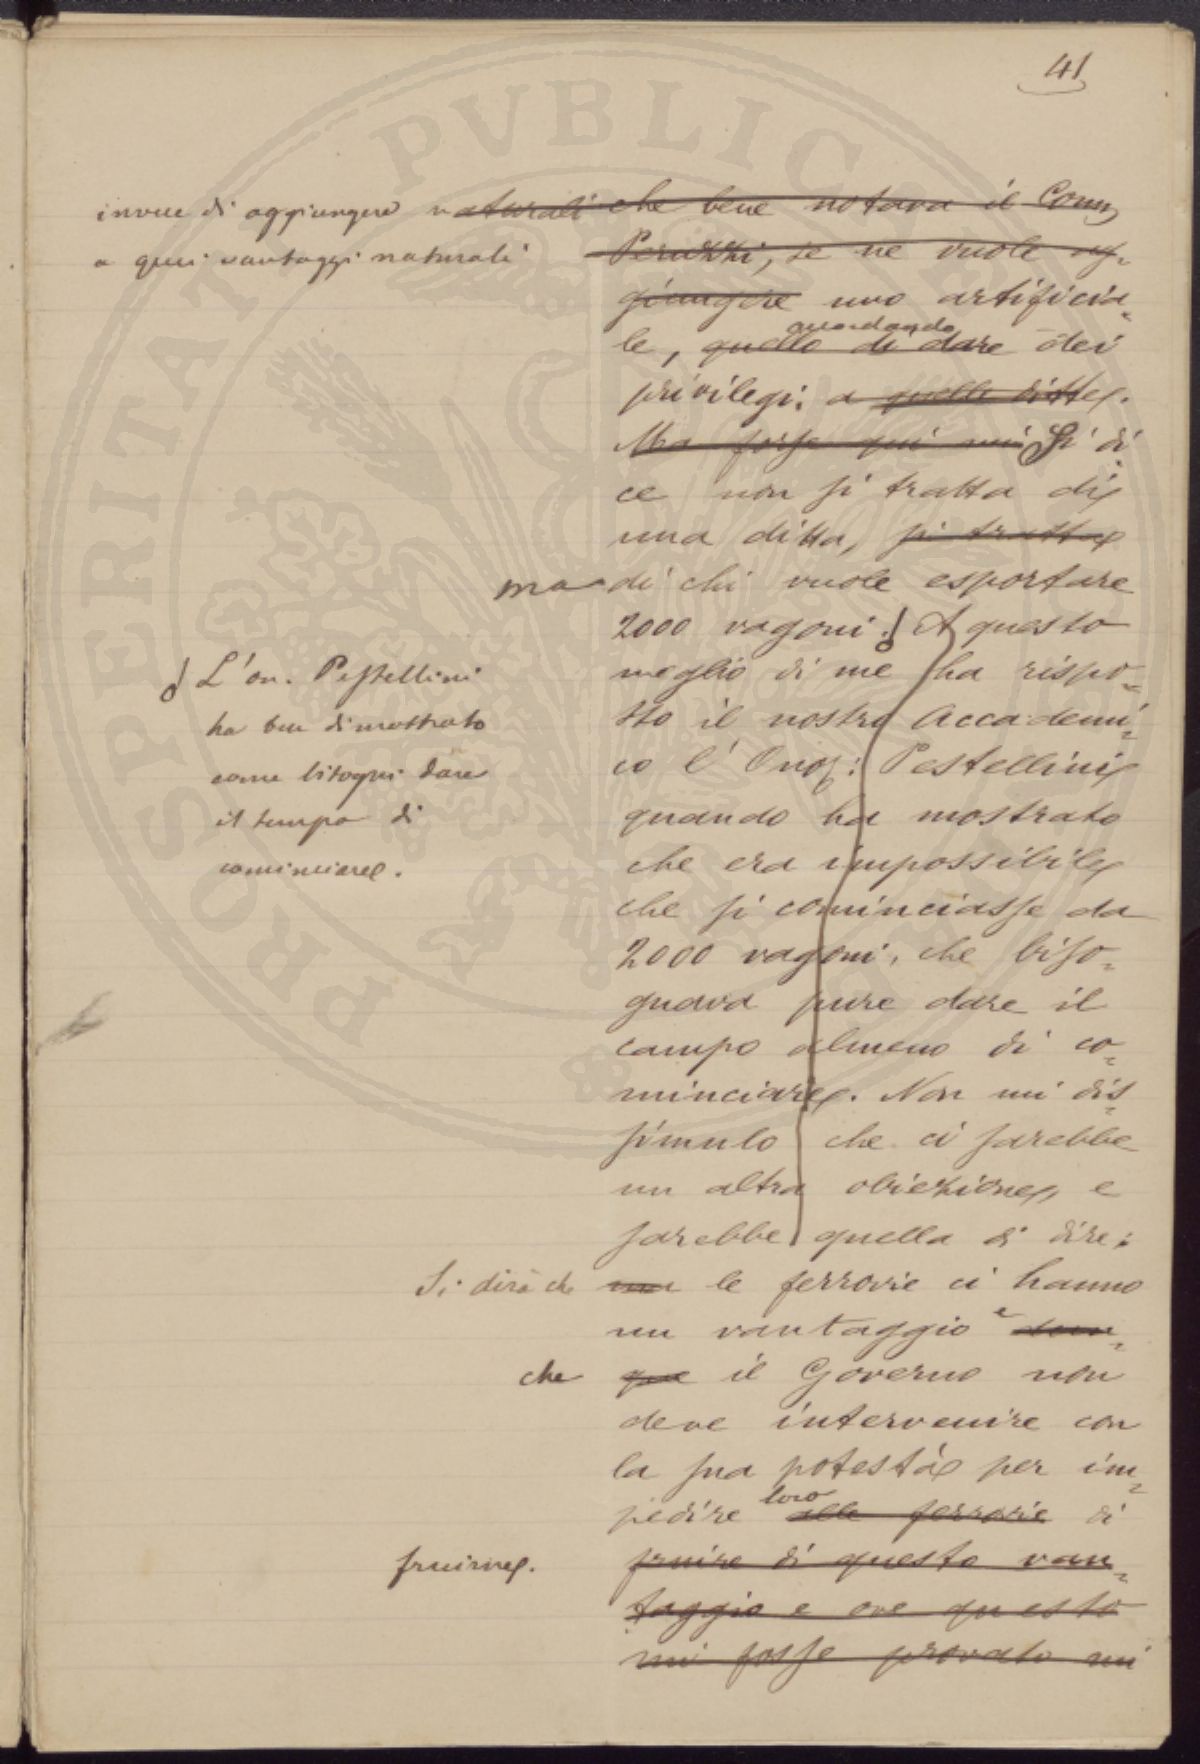 41
PROSPERITAT PVBLICAE
invece di aggiungere
a quei vantaggi naturali
naturali che bene notava il Comm
Peruzzi, se ne vuole ag-
giungere uno artificia-
le, quello di dare dei
accordando
privilegi: a quelle ditte.
Ma forse qui mi Si di
ce non si tratta di
una ditta, si tratta
ma di chi vuole esportare
2000 vagoni. A questo
meglio di me ha rispo-
sto il nostro Accademi-
co l'Onor: Pestellini
quando ha mostrato
che era impossibile
che si cominciasse da
2000 vagoni, che biso-
gnava pure dare il
campo almeno di co-
minciare. Non mi dis-
simulo che ci sarebbe
un altra obiezione, e
sarebbe quella di dire:
L'on. Pestellini
ha ben dimostrato
come bisogni dare
il tempo di
cominciare.
Si dirà che ma le ferrovie ci hanno
un vantaggio e dun-
che que il Governo non
deve intervenire con
la sua potestà per im-
pedire loro alle ferrovie di
fruirne. fruire di questo van-
taggio e ove questo
mi fosse provato mi